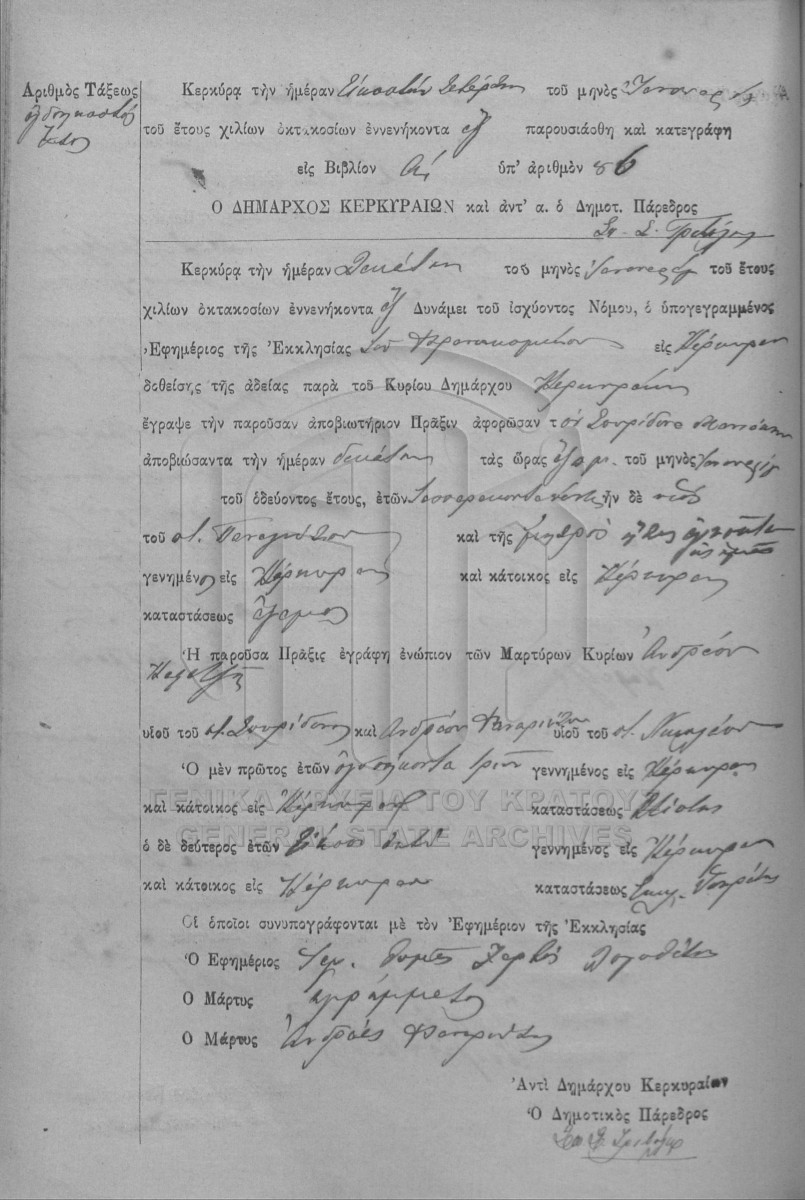 Ἀριθμὸς Τάξεως
ὀγδοηκοστός
ἕκτος
Κερκύρᾳ τὴν ἡμέραν Εἰκοστὴν τετάρτην τοῦ μηνὸς Ἰανουαρίου
τοῦ ἔτους χιλίων ὀκτακοσίων ἐννενήκοντα ἓξ παρουσιάσθη καὶ κατεγράφη
εἰς Βιβλίον Α΄. ὑπ' ἀριθμὸν 86
Ο ΔΗΜΑΡΧΟΣ ΚΕΡΚΥΡΑΙΩΝ καὶ ἀντ' α. ὁ Δημοτ. Πάρεδρος
Σπ. Σ.
Κερκύρᾳ τὴν ἡμέραν Δεκάτην τοῦ μηνὸς Ἰανουαρίου τοῦ ἔτους
χιλίων ὀκτακοσίων ἐννενήκοντα ἓξ Δυνάμει τοῦ ἰσχύοντος Νόμου, ὁ ὑπογεγραμμένος
Ἐφημέριος τῆς Ἐκκλησίας τοῦ εἰς Κέρκυραν
δοθείσης τῆς ἀδείας παρὰ τοῦ Κυρίου Δημάρχου Κερκυραίων
ἔγραψε τὴν παροῦσαν ἀποβιωτήριον Πρᾶξιν ἀφορῶσαν τὸν Σπυρίδωνα
ἀποβιώσαντα τὴν ἡμέραν δεκάτην τὰς ὥρας τοῦ μηνὸς Ἰανουαρίου
τοῦ ὁδεύοντος ἔτους, ἐτῶν ἦν δὲ υἱὸς
τοῦ ποτ. Παναγιώτου καὶ τῆς μητρὸς
γενημένος εἰς Κέρκυραν καὶ κάτοικος εἰς Κέρκυραν
καταστάσεως ἄγαμος
Ἡ παροῦσα Πρᾶξις ἐγράφη ἐνώπιον τῶν Μαρτύρων Κυρίων Ἀνδρέου
υἱοῦ τοῦ ποτ. Σπυρίδωνος καὶ Ἀνδρέου υἱοῦ τοῦ ποτ. Νικολάου
Ὁ μὲν πρῶτος ἐτῶν ὀγδοήκοντα τριῶν γεννημένος εἰς Κέρκυραν
καὶ κάτοικος εἰς Κέρκυραν καταστάσεως
ὁ δὲ δεύτερος ἐτῶν εἴκοσι ὀκτὼ γεννημένος εἰς Κέρκυραν
καὶ κάτοικος εἰς Κέρκυραν καταστάσεως
Οἱ ὁποῖοι συνυπογράφονται μὲ τὸν Ἐφημέριον τῆς Ἐκκλησίας
Ὁ Ἐφημέριος
Ο Μάρτυς ἀγράμματος
Ο Μάρτυς Ἀνδρέας
Ἀντὶ Δημάρχου Κερκυραίων
Ὁ Δημοτικὸς Πάρεδρος
Σπ. Σ.
ΓΕΝΙΚΑ ΑΡΧΕΙΑ ΤΟΥ ΚΡΑΤΟΥΣ
GENERAL STATE ARCHIVES